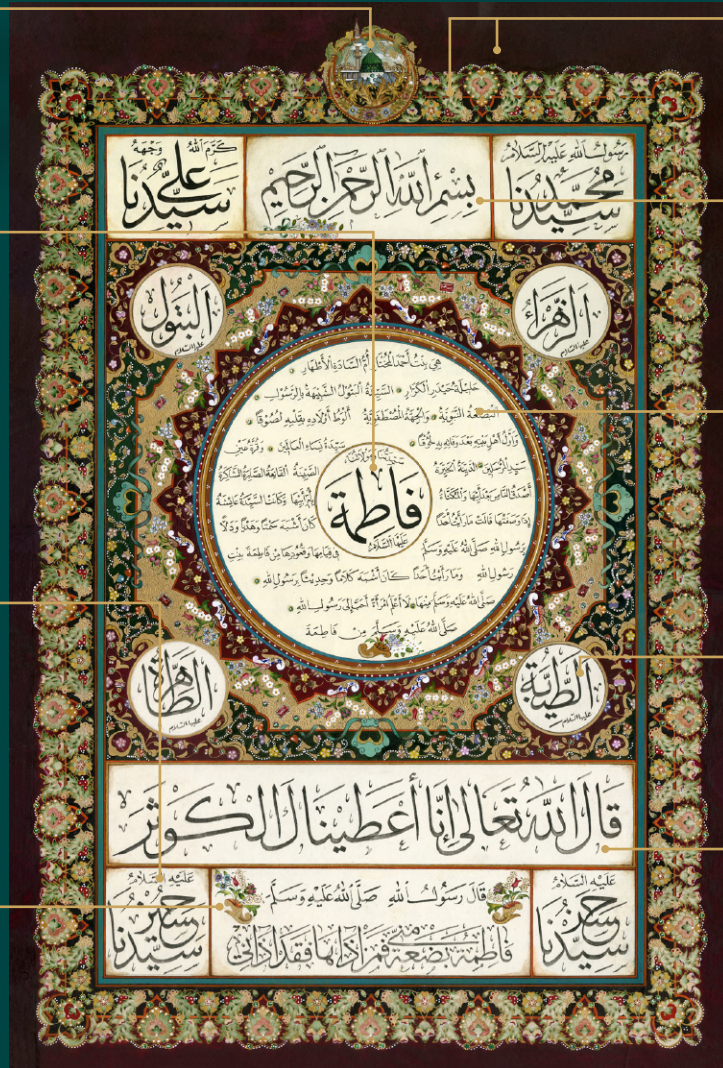 رسول الله عليه السلام
سيدنا محمد
بسم الله الرحمن الرحيم
كرم الله وجهه
سيدنا علي
الزهراء
عليها السلام
البتول
عليها السلام
هي بنت أحمد المختار أم السادة الأطهار
حليلة حيدر الكرار السيدة البتول الشبيهة بالرسول
البضعة النبوية والجهة المصطفوية ألوط أولاده بقلبه لصوقا
وأول أهل بيته بعد وفاته به لحوقا
سيدة نساء العالمين وقرة عين
سيد المرسلين
السيدة القانعة الصابرة الشاكرة
وكانت السيدة عائشة
إذا وصفتها قالت ما رأيت أحدا
كان أشبه سمتا وهديا ودلا
برسول الله صلى الله عليه وسلم
في قيامها وقعودها من فاطمة بنت
رسول الله وما رأيت أحدا كان أشبه كلاما وحديثا برسول الله
صلى الله عليه وسلم منها ولا أعلم امرأة أحب إلى رسول الله
صلى الله عليه وسلم من فاطمة
سيدتنا ومولاتنا
فاطمة
عليها السلام
الطيبة
عليها السلام
الطاهرة
عليها السلام
قال الله تعالى إنا أعطينال الكوثر
عليه السلام
سيدنا حسن
قال رسول الله صلى الله عليه وسلم
فاطمة بضعة مني فمن آذاها فقد آذاني
عليه السلام
سيدنا حسين